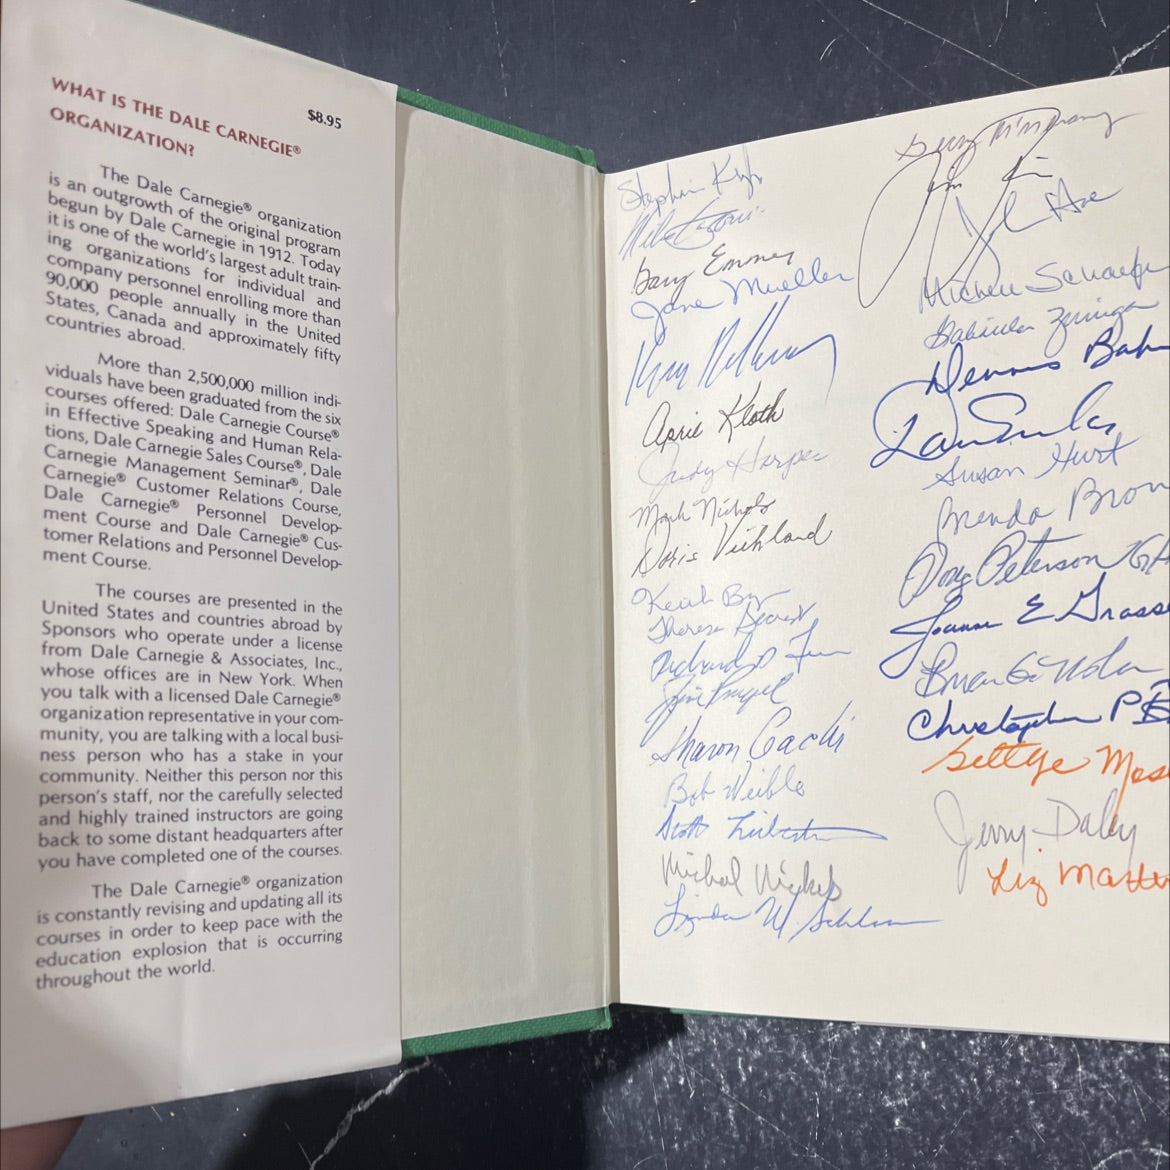 WHAT IS THE DALE CARNEGIE®
ORGANIZATION?
$8.95
The Dale Carnegie® organization
is an outgrowth of the original program
begun by Dale Carnegie in 1912. Today
it is one of the world's largest adult train-
ing organizations for individual and
company personnel enrolling more than
90,000 people annually in the United
States, Canada and approximately fifty
countries abroad.
More than 2,500,000 million indi-
viduals have been graduated from the six
courses offered: Dale Carnegie Course®
in Effective Speaking and Human Rela-
tions, Dale Carnegie Sales Course®, Dale
Carnegie Management Seminar®, Dale
Carnegie® Customer Relations Course,
Dale Carnegie® Personnel Develop-
ment Course and Dale Carnegie® Cus-
tomer Relations and Personnel Develop-
ment Course.
The courses are presented in the
United States and countries abroad by
Sponsors who operate under a license
from Dale Carnegie & Associates, Inc.,
whose offices are in New York. When
you talk with a licensed Dale Carnegie®
organization representative in your com-
munity, you are talking with a local busi-
ness person who has a stake in your
community. Neither this person nor this
person's staff, nor the carefully selected
and highly trained instructors are going
back to some distant headquarters after
you have completed one of the courses.
The Dale Carnegie® organization
is constantly revising and updating all its
courses in order to keep pace with the
education explosion that is occurring
throughout the world.
Stephen
Gary Emmey
Jane Mueller
April Kloth
Judy Harper
Mark Nichols
Doris Viehland
Keith
Theresa
Richard D
Jim
Sharon
Bob Weible
Scott
Michael
Linda M
Jim
Michele Schaefer
Dennis
Susan Hurt
Brenda Brow
Doug Peterson
Joanne E Grass
Brian G. Nolan
Christopher P
Mos
Jerry Daley
Liz